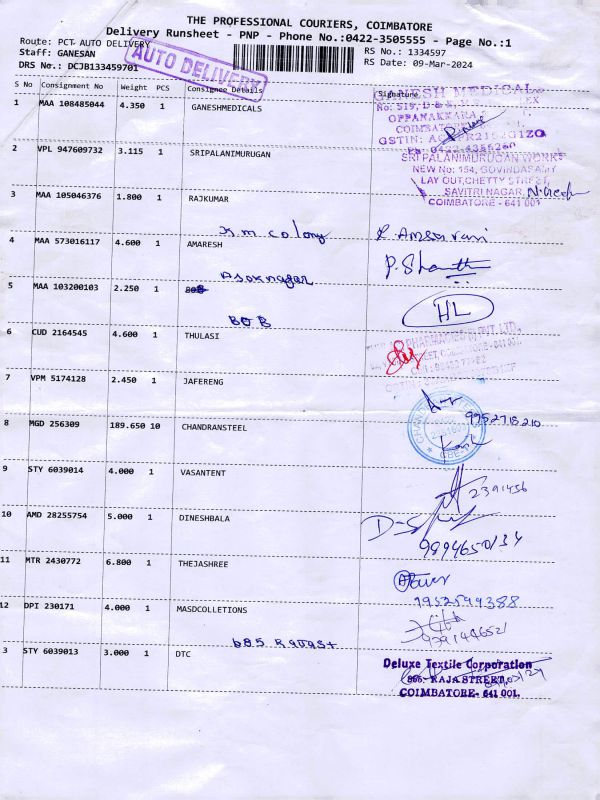 THE PROFESSIONAL COURIERS, COIMBATORE
Delivery Runsheet - PNP - Phone No.:0422-3505555 - Page No.:1
Route: PCT AUTO DELIVERY
RS No.: 1334597
Staff: GANESAN
RS Date: 09-Mar-2024
DRS No.: DCJB133459701
AUTO DELIVERY
S No Consignment No Weight PCS Consignee Details Signature
1 MAA 108485044 4.350 1 GANESHMEDICALS
GANESH MEDICAL
OPPANAKKARA
COIMBATORE
2 VPL 947609732 3.115 1 SRIPALANIMURUGAN
SRI PALANIMURUGAN WORKS
NEW No: 154, GOVINDASAMY
LAY OUT, CHETTY STREET,
SAVITRI NAGAR,
COIMBATORE - 641 001.
3 MAA 105046376 1.800 1 RAJKUMAR
K.m. colony
4 MAA 573016117 4.600 1 AMARESH
P. Shanthi
Asoknagar
5 MAA 103200103 2.250 1
HL
BOB
6 CUD 2164545 4.600 1 THULASI
7 VPM 5174128 2.450 1 JAFERENG
9952718210
8 MGD 256309 189.650 10 CHANDRANSTEEL
9 STY 6039014 4.000 1 VASANTENT
2391456
10 AMD 28255754 5.000 1 DINESHBALA
9894650134
11 MTR 2430772 6.800 1 THEJASHREE
9952599388
12 DPI 230171 4.000 1 MASDCOLLETIONS
685 Rajast
3 STY 6039013 3.000 1 DTC
Deluxe Textile Corporation
RAJA STREET,
COIMBATORE- 641 001.